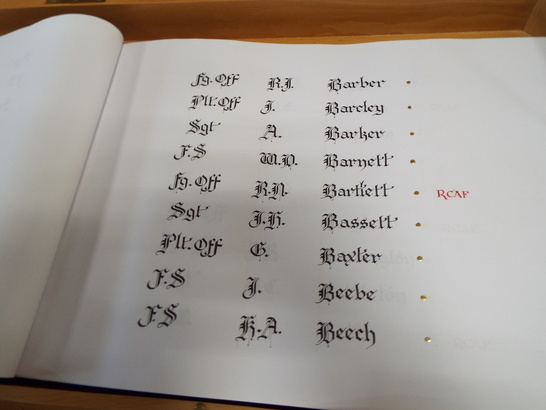 Fg. Off R.J. Barber
Plt. Off J. Barcley
Sgt A. Barker
F.S W.D. Barnett
Fg. Off B.N. Bartlett RCAF
Sgt J.H. Bassett
Plt. Off G. Baxter
F.S J. Beebe
F.S K.A. Beech